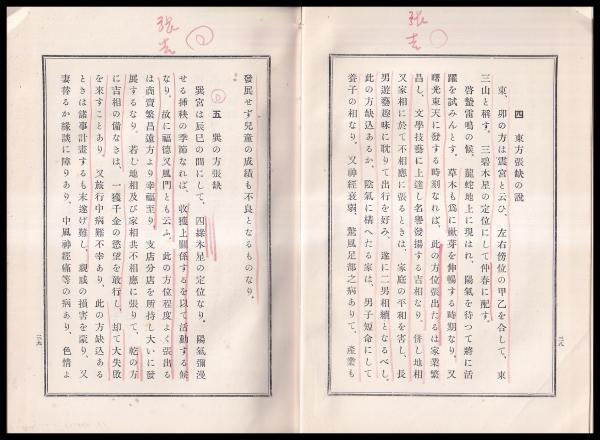 張
吉
四　東方張缺の說
東、卯の方は震宮と云ひ、左右傍位の甲乙を合して、東
三山と稱す。三碧木星の定位にして仲春に配す。
啓蟄雷鳴の候、龍蛇地上に現はれ、陽氣を待つて將に活
躍を試みんとす。草木も爲に嫩芽を伸暢する時期なり、又
曙光東天に發する時刻なれば、此の方位張出たるは家業繁
昌し、文學技藝に上達し名譽發揚する吉相なり、併し地相
又家相に於て不相應に張るときは、家庭の平和を害し、長
男遊藝趣味に耽りて出行を好み、遂に二男相續となるべし、
此の方缺込あるか、陰氣に構へたる家は、男子短命にして
養子の相なり、又神經衰弱、驚風足部之病ありて、產業も
二八
張
吉
發展せず兒童の成績も不良となるものなり。
五　巽の方張缺
巽宮は辰巳の間にして、四綠木星の定位なり、陽氣彌漫
せる挿秧の季節なれば、收穫上關係するを以て活動する候
なり、故に福德又風門とも云ふ、此の方位程度よく張出る
は商賣繁昌遠方より幸福至り、支店分店を所持し大いに發
展するなり。若し地相及び家相共不相應に張りて、乾の方
に吉相の備なきは、一獲千金の慾望を敢行し、却て大失敗
を來すことあり、又旅行中病難不幸あり、此の方缺込ある
ときは諸事計畫するも未遂げ難し、親戚の損害を蒙り、又
妻替るか緣談に障りあり、中風神經痛等の病あり、色情よ
二九